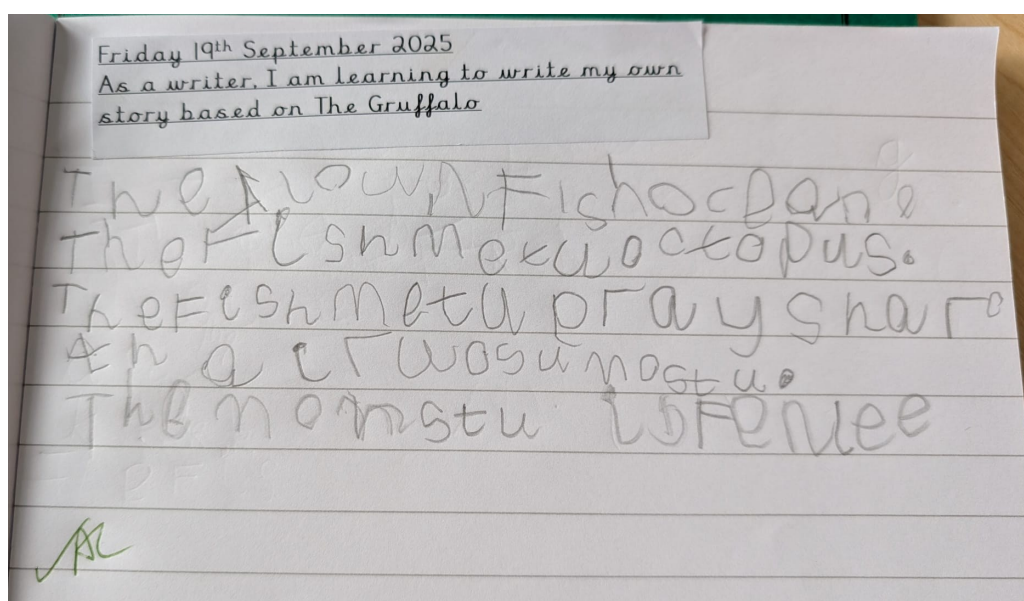 Friday 19th September 2025
As a writer, I am learning to write my own
story based on The Gruffalo
The clown Fish ocean
the Fish met u octopus.
The Fish met u pray shar
tha ir wos u mostu.
The nomstu is Fenlee